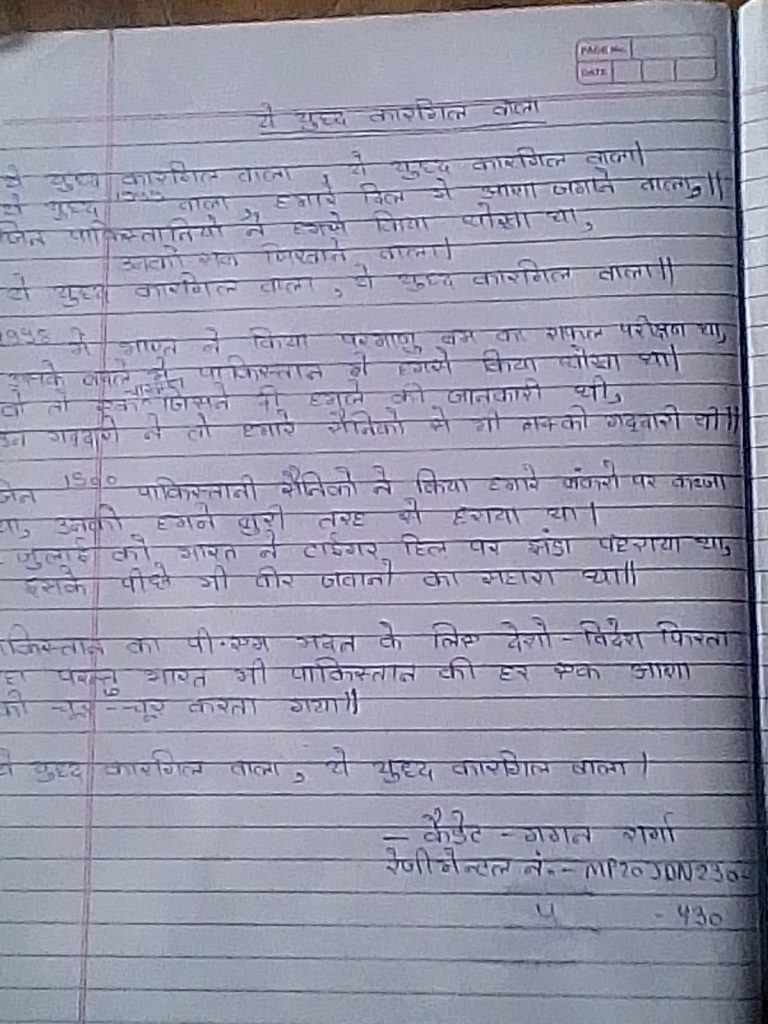 PAGE No.
DATE
ये युद्ध कारगिल वाला
ये युद्ध कारगिल वाला, ये युद्ध कारगिल वाला।
ये युद्ध 1999 वाला, हमारे दिल में आशा जगाने वाला,॥
जिन पाकिस्तानियों ने हमसे किया धोखा था,
उनको सबक सिखाने वाला।
ये युद्ध कारगिल वाला, ये युद्ध कारगिल वाला॥
1998 में भारत ने किया परमाणु बम का सफल परीक्षण था,
उसके बदले में पाकिस्तान ने हमसे किया धोखा था।
वो तो इक चरवाहा जिसने दी हमले की जानकारी थी,
उन गद्दारो ने तो हमारे सैनिको से भी गद्दारी थी॥
जिन 1500 पाकिस्तानी सैनिको ने किया हमारे बंकरो पर कब्जा
था, उनको हमने बुरी तरह से हराया था।
जुलाई को भारत ने टाईगर हिल पर झंडा फहराया था,
इसके पीछे भी वीर जवानो का सहारा था॥
पाकिस्तान का पी.एम मदद के लिए देशो-विदेश फिरता
रहा परन्तु भारत भी पाकिस्तान की हर एक आशा
को चूर-चूर करता गया॥
ये युद्ध कारगिल वाला, ये युद्ध कारगिल वाला।
- कैडेट - गगन शर्मा
रेजीमेन्टल नं.- MP20JDN230-
4 - 430